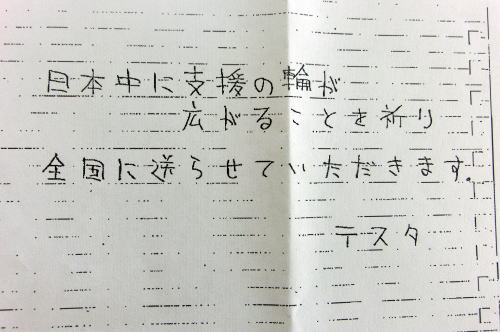 日本中に支援の輪が
広がることを祈り
全国に送らせていただきます。
テスタ